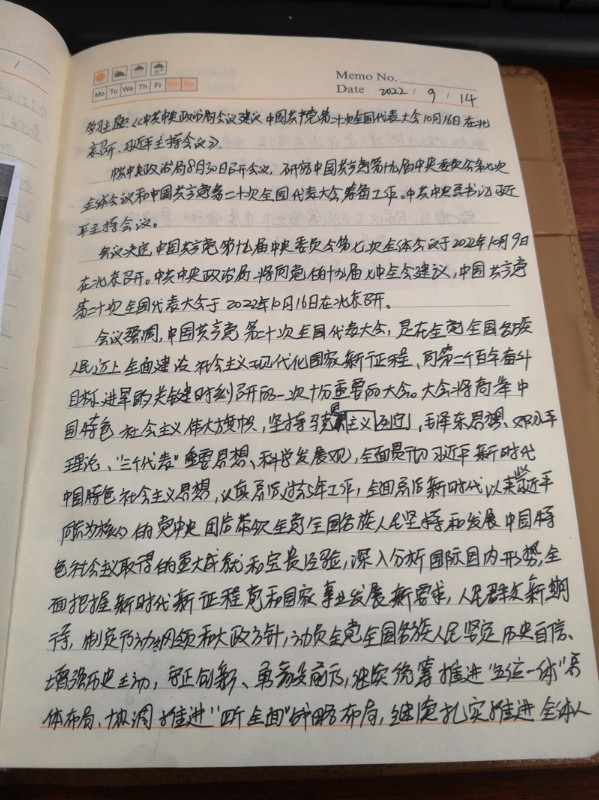 Memo No.
Mo Tu We Th Fr Sa Su
Date 2022 / 9 / 14
学习主题:《中共中央政治局会议建议 中国共产党第二十次全国代表大会10月16日在北
京召开、习近平主持会议》.
中共中央政治局8月30日召开会议，研究中国共产党第十九届中央委员会第七次
全体会议和中国共产党第二十次全国代表大会筹备工作。中共中央总书记习近
平主持会议。
会议决定,中国共产党第十九届中央委员会第七次全体会议于2022年10月9日
在北京召开。中共中央政治局将向党的十九届七中全会建议，中国共产党
第二十次全国代表大会于2022年10月16日在北京召开.
会议强调,中国共产党第二十次全国代表大会，是在全党全国各族
人民迈上全面建设社会主义现代化国家新征程、向第二个百年奋斗
目标进军的关键时刻召开的一次十分重要的大会。大会将高举中
国特色社会主义伟大旗帜，坚持马克思主义列宁，毛泽东思想、邓小平
理论、"三个代表"重要思想、科学发展观，全面贯彻习近平新时代
中国特色社会主义思想，认真总结过去5年工作，全面总结新时代以来以习近平
同志为核心的党中央团结带领全党全国各族人民坚持和发展中国特
色社会主义取得的重大成就和宝贵经验，深入分析国际国内形势,全
面把握新时代新征程党和国家事业发展新要求，人民群众新期
待，制定行动纲领和大政方针，动员全党全国各族人民坚定历史自信、
增强历史主动，守正创新、勇毅前行，继续统筹推进"五位一体"总
体布局、协调推进"四个全面"战略布局，继续扎实推进全体人